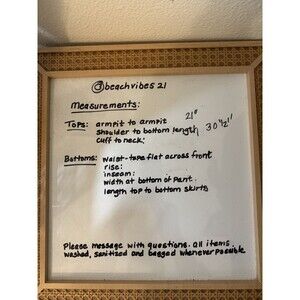 @beachvibes21
Measurements:
Tops: armpit to armpit 21"
shoulder to bottom length 30 1/2"
cuff to neck:
Bottoms: waist-tape flat across front
rise:
inseam:
width at bottom of pant.
length top to bottom skirts
Please message with questions. all items
washed, sanitized and bagged whenever possible